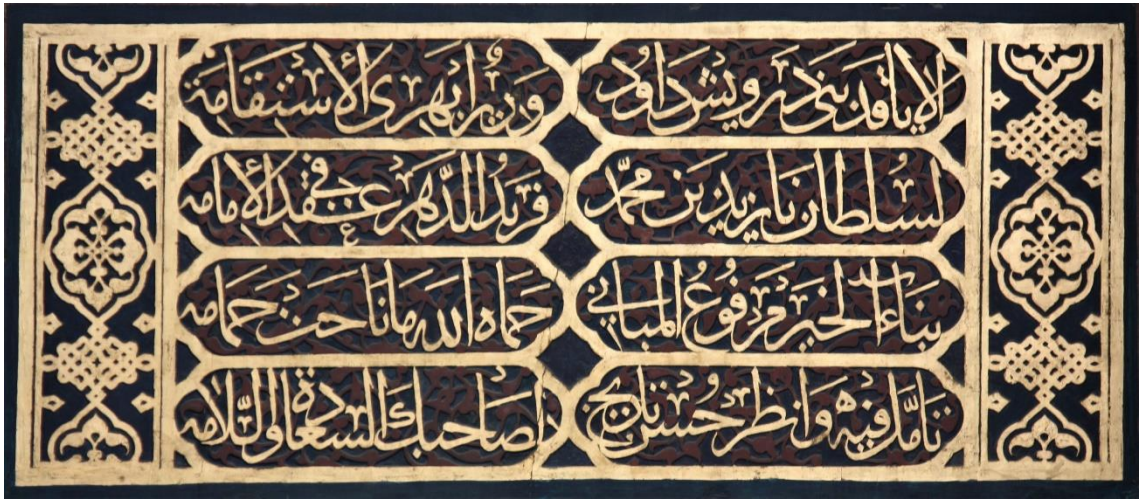 ألا يا قد بنى درويش داود وزيرا بهرى الأستقامة
لسلطان بايزيد بن محمد فريد الدهر في عقد الأمامه
بناء الخير مرفوع المباني حماه الله ما ناحت حمامه
تأمل فيه وانظر حسن تاريخ لصاحبك السعادة والسلامه